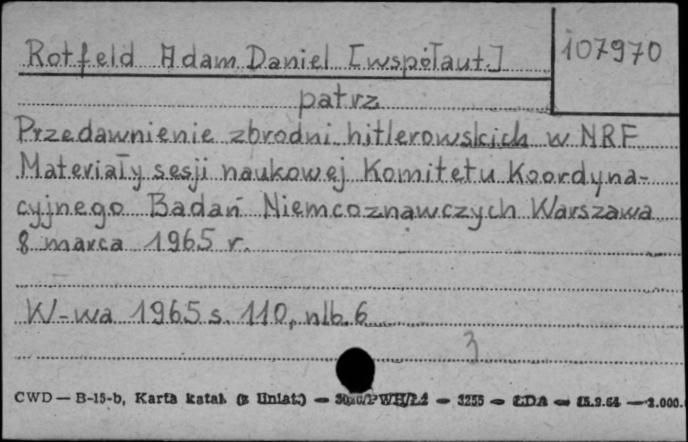 Rotfeld Adam Daniel [współaut.]
107970
patrz
Przedawnienie zbrodni hitlerowskich w NRF
Materiały sesji naukowej Komitetu Koordyna-
cyjnego Badań Niemcoznawczych Warszawa
8 marca 1965 r.
W-wa 1965 s. 110, nlb. 6
3
CWD — B-15-b, Karta katal. (z liniat.) — — 3255 — ŁDA — 15.9.64 —